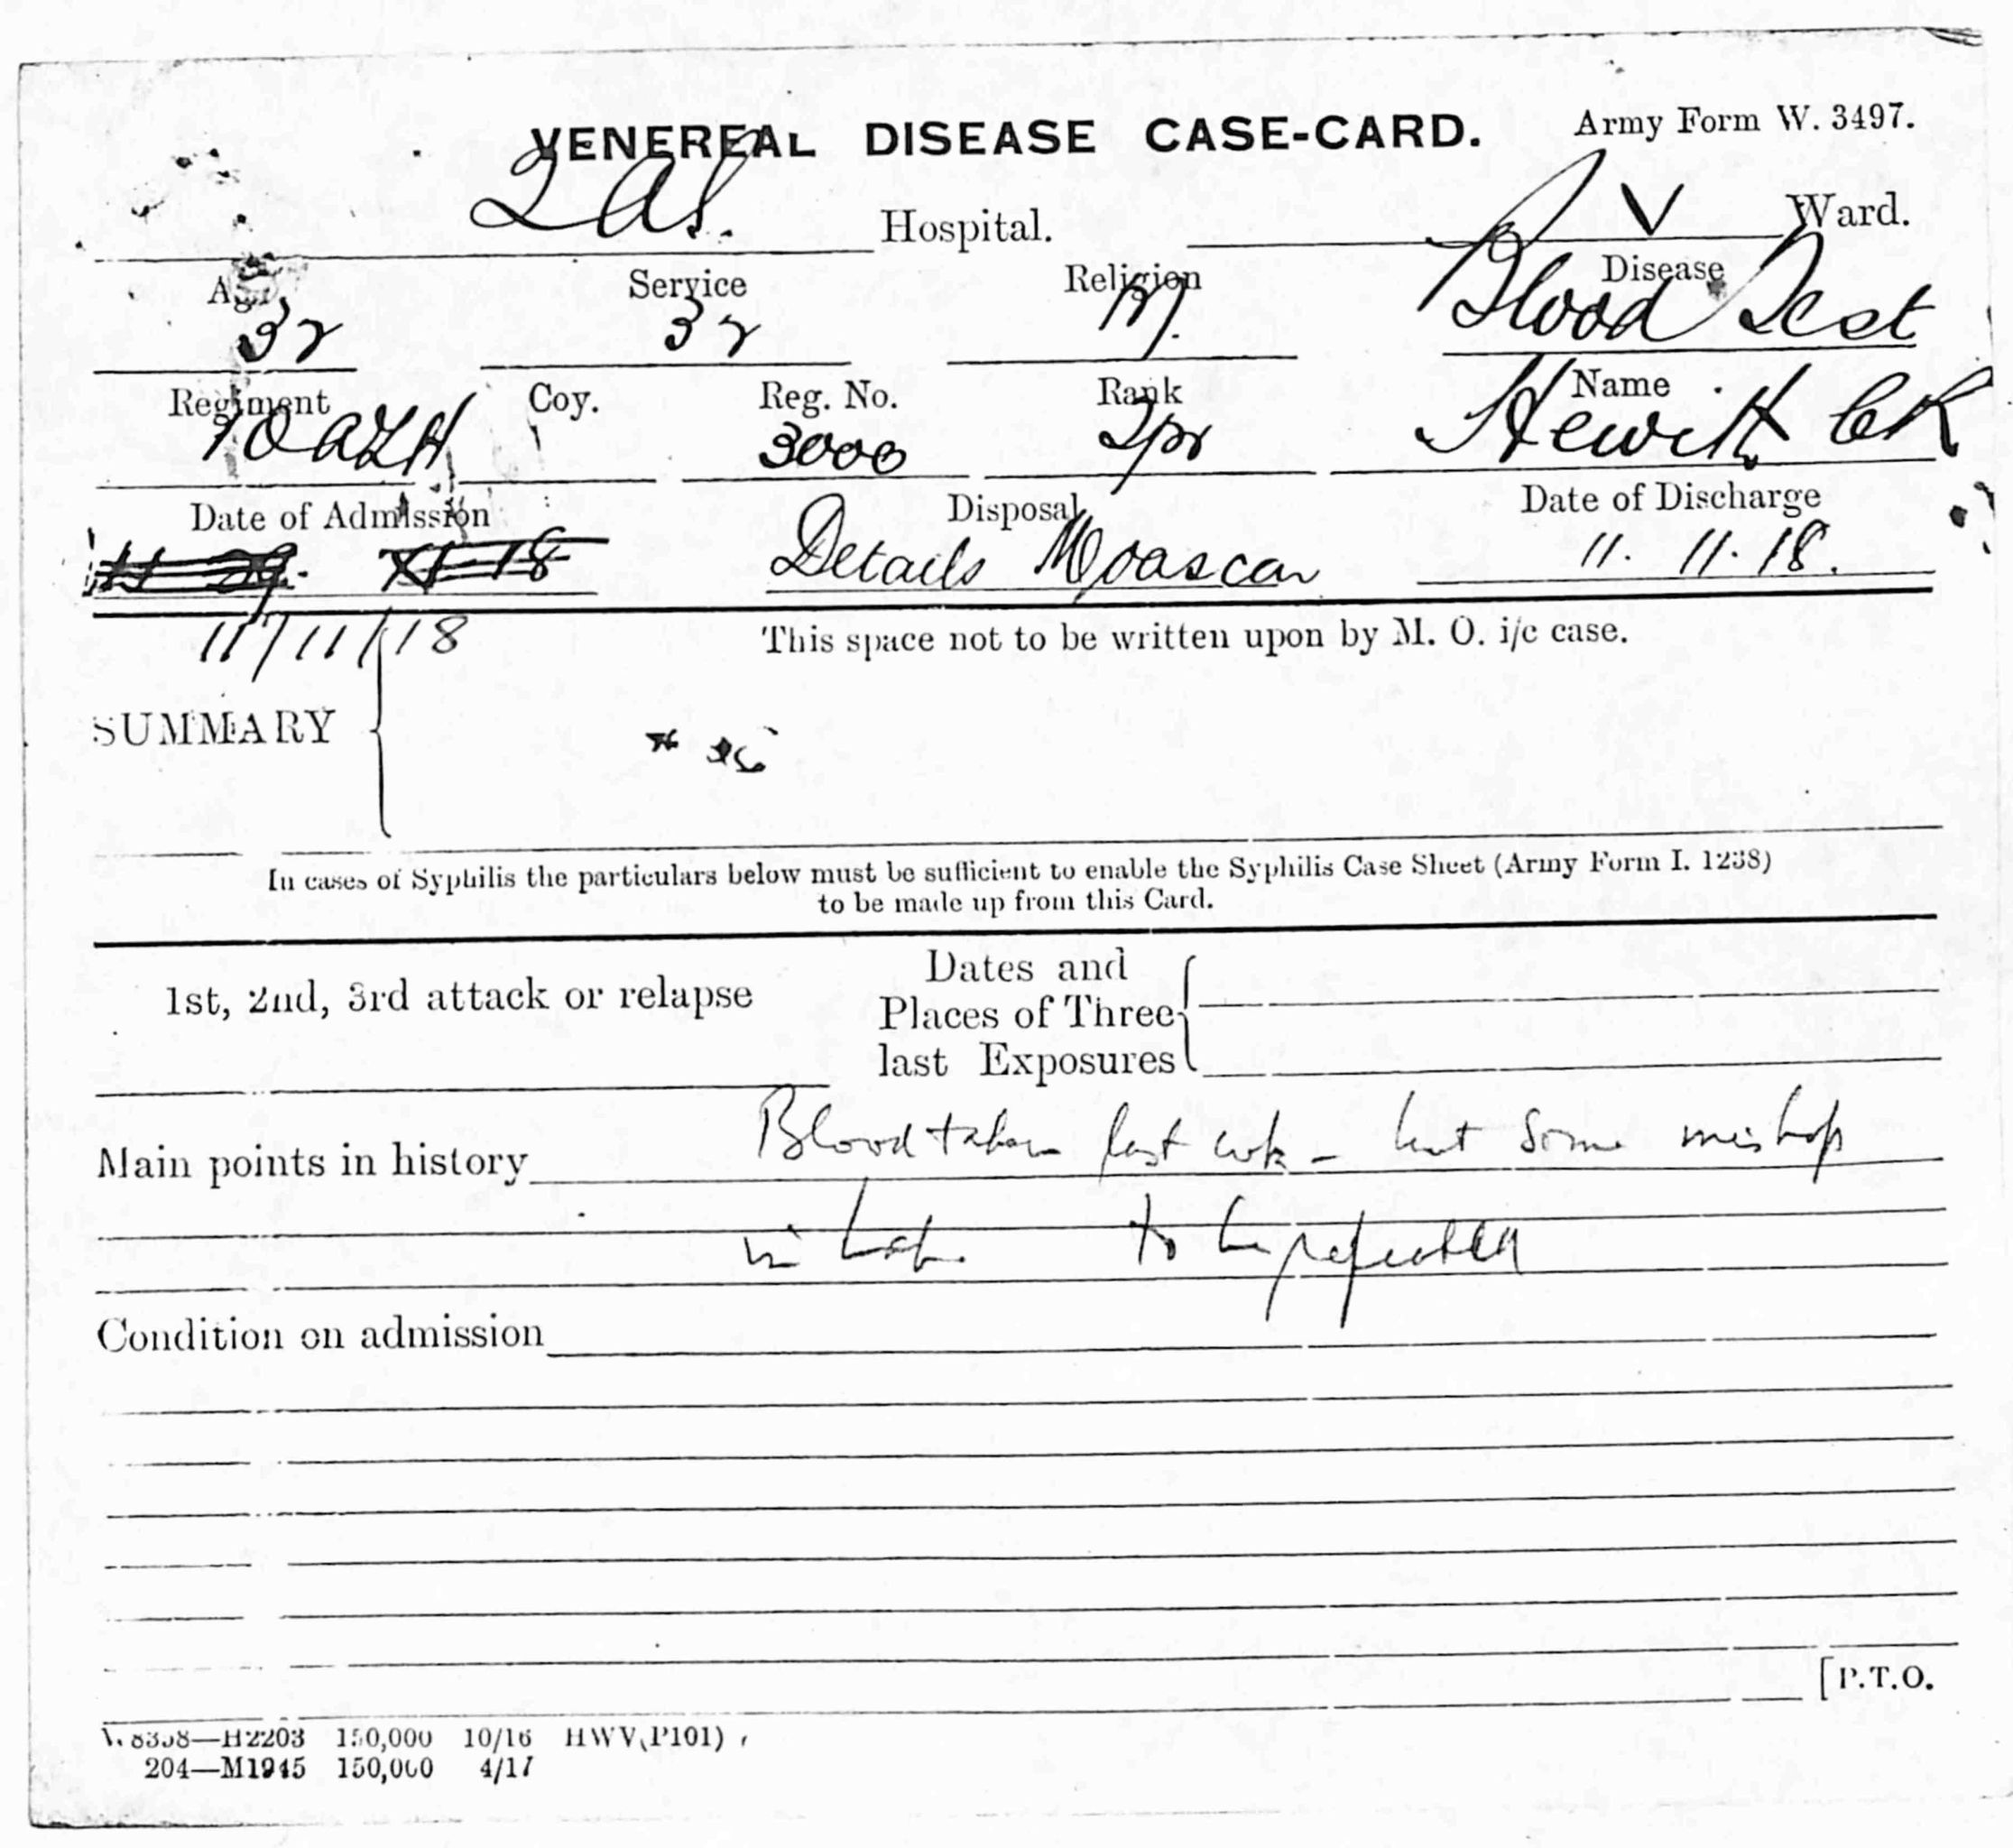 VENEREAL DISEASE CASE-CARD. Army Form W. 3497.
Hospital. V Ward.
Age Service Religion Disease
32 32 M. Blood Test
Regiment Coy. Reg. No. Rank Name
10 ALH 3000 Tpr Hewitt CK
Date of Admission Disposal Date of Discharge
Details Moascar 11. 11. 18.
11/11/18
This space not to be written upon by M. O. i/c case.
SUMMARY
In cases of Syphilis the particulars below must be sufficient to enable the Syphilis Case Sheet (Army Form I. 1238)
to be made up from this Card.
1st, 2nd, 3rd attack or relapse
Dates and
Places of Three
last Exposures
Main points in history Blood taken last wk - but some mishap
in Lab. to be repeated
Condition on admission
[P.T.O.
8358—H2203 150,000 10/16 HWV(P101)
204—M1945 150,000 4/17